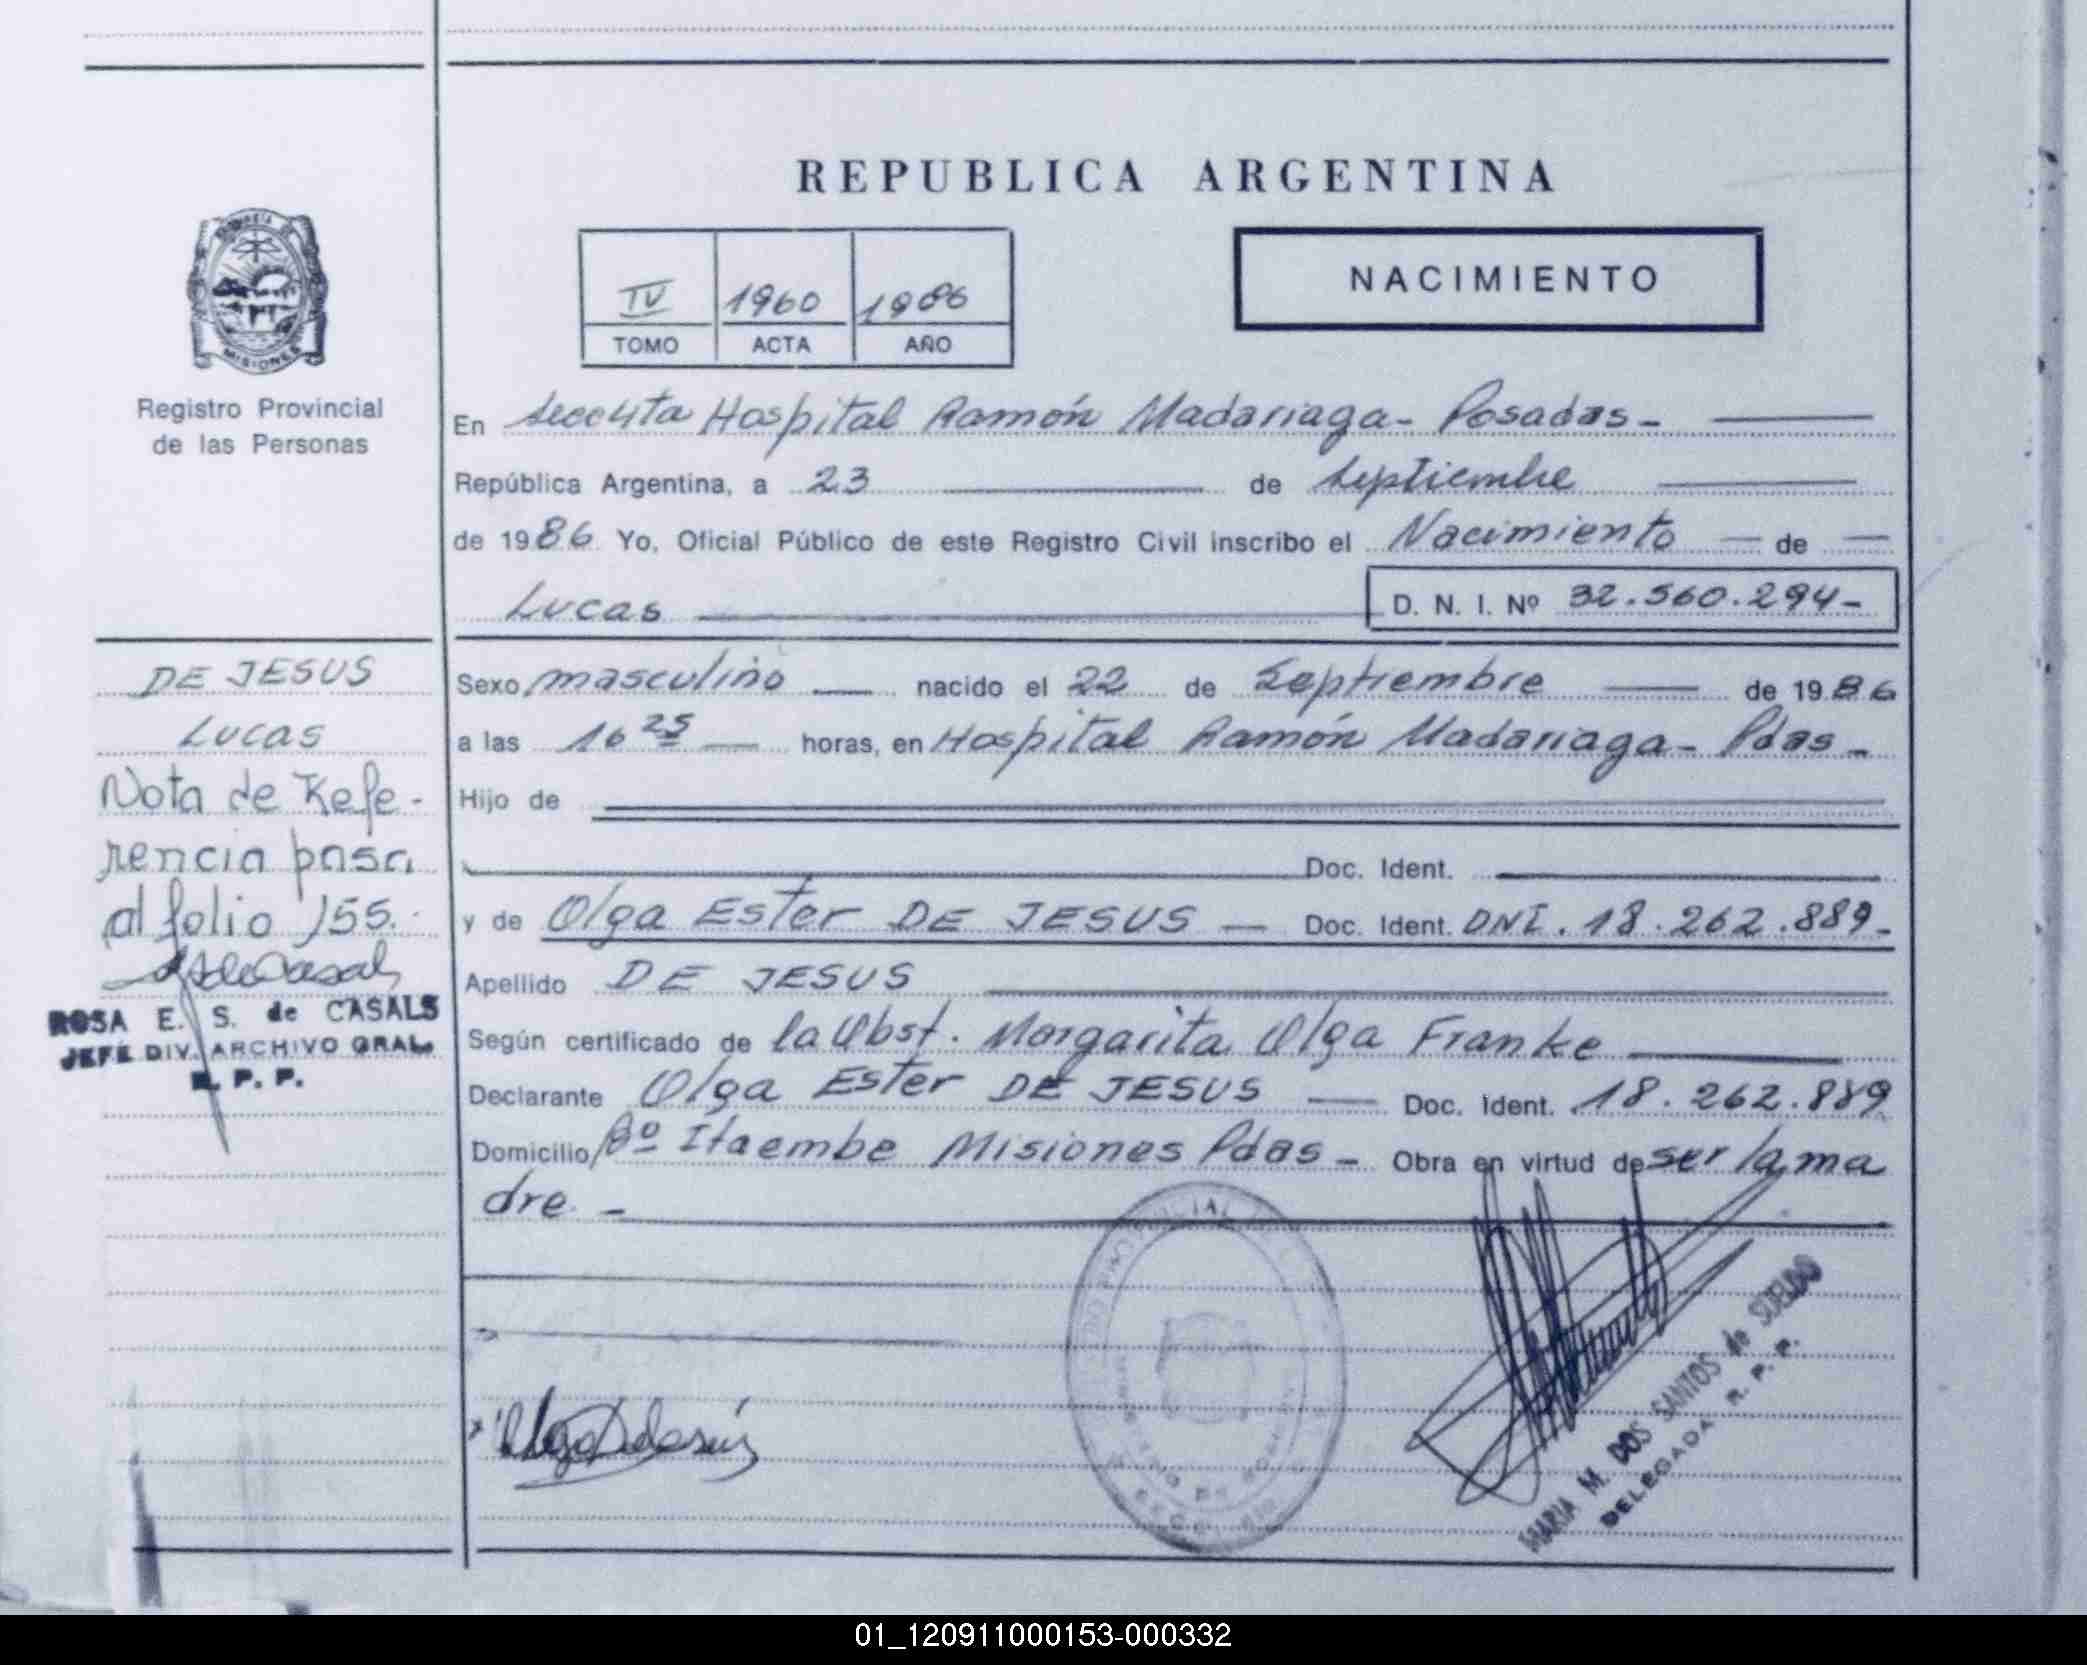 REPUBLICA ARGENTINA
NACIMIENTO
IV 1960 1986
TOMO ACTA AÑO
MISIONES
Registro Provincial
de las Personas
En Hospital Ramón Madariaga - Posadas -
República Argentina, a 23 de Septiembre
de 1986 Yo, Oficial Público de este Registro Civil inscribo el Nacimiento de
Lucas D. N. I. Nº 32.560.294-
DE JESUS
Lucas
Nota de Refe-
rencia pasa
al folio 155.
ROSA E. S. de CASALS
JEFE DIV. ARCHIVO GRAL.
R. P. P.
Sexo masculino nacido el 22 de Septiembre de 1986
a las 16 25 horas, en Hospital Ramón Madariaga - Pdas -
Hijo de
Doc. Ident.
y de Olga Ester DE JESUS - Doc. Ident. DNI. 18.262.889-
Apellido DE JESUS
Según certificado de la Obst. Margarita Olga Franke
Declarante Olga Ester DE JESUS Doc. Ident. 18.262.889
Domicilio Bº Itaembe Misiones Pdas - Obra en virtud de ser la ma
dre -
MARIA M. DOS SANTOS de SUELDO
DELEGADA R. P. P.
01_120911000153-000332